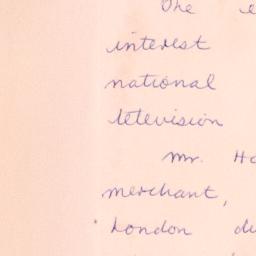 The
interest
national
television
Mr. Ha
merchant,
London du